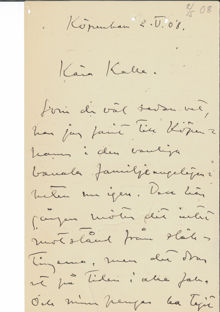 2/5 08
Köpenhamn 2.V.08.
Kära Kalle.
Som du väl redan vet,
har jag farit till Köpen-
hamn i den vanliga
banala familjeangelägen-
heten nu igen. Den här
gången möter det intet
motstånd från släk-
tingarna, men det drar
ut på tiden i alla fall.
Och mina pengar ha tagit